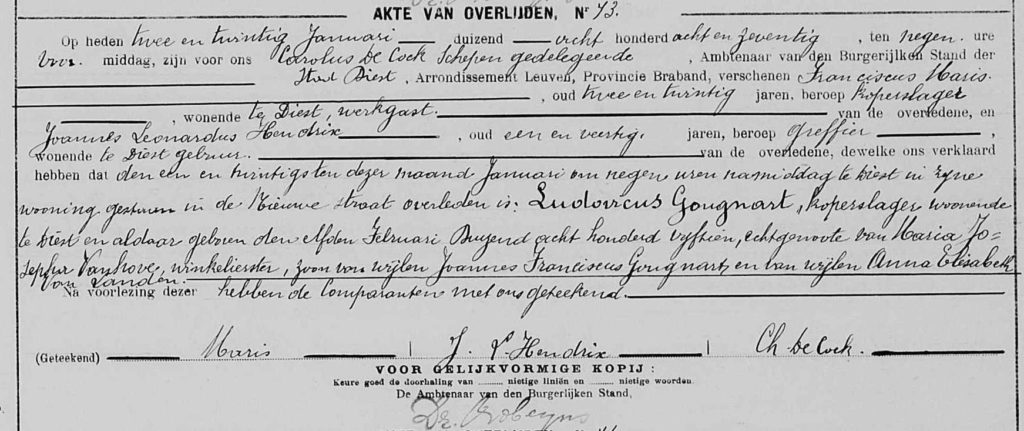 AKTE VAN OVERLIJDEN, Nr 73.
Op heden twee en twintig Januari duizend acht honderd acht en zeventig, ten negen ure
Voor middag, zijn voor ons Carolus De Cock Schepen gedelegeerde, Ambtenaar van den Burgerlijken Stand der
Stad Diest, Arrondissement Leuven, Provincie Braband, verschenen Franciscus Maris.
, oud twee en twintig jaren, beroep koperslager
, wonende te Diest, werkgast. van de overledene, en
Joannes Leonardus Hendrix, oud een en veertig, jaren, beroep Greffier,
wonende te Diest gebuur. van de overledene, dewelke ons verklaard
hebben dat den een en twintigsten dezer maand Januari om negen uren namiddag te Diest in zyne
wooning gestaan in de Nieuwe straat overleden is: Ludovicus Gougnart, koperslager woonende
te Diest en aldaar geboren den elfden Februari Duyzend acht honderd vyftien, echtgenoote van Maria Jo-
sepha Vanhove, winkelierster, zoon van wijlen Joannes Franciscus Gougnart, en van wijlen Anna Elisabeth
Van Landen.
Na voorlezing dezer hebben de Comparanten met ons geteekend.
(Geteekend) Maris | J. L. Hendrix | Ch De Cock.
VOOR GELIJKVORMIGE KOPIJ :
Keure goed de doorhaling van ........ nietige liniën en ........ nietige woorden.
De Ambtenaar van den Burgerlijken Stand,